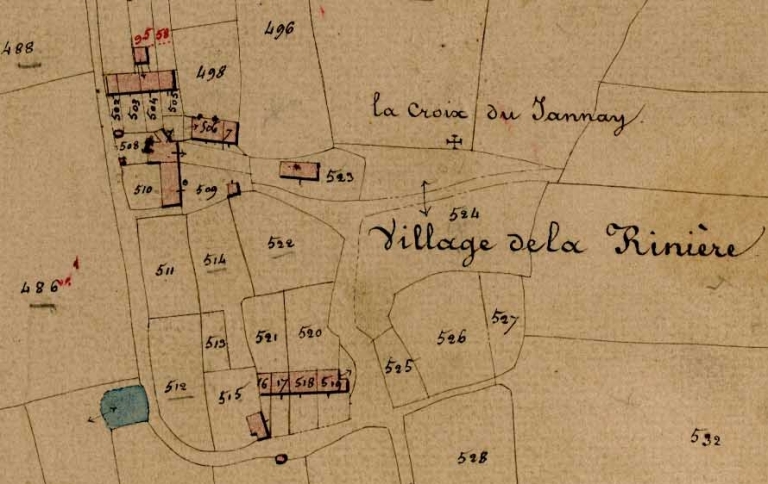 95 58
496
488
498
502 503 504 505
506 7
la Croix du Jannay
508
523
510
509
524
Village dela Rinière
522
511
514
486
527
521
520
526
513
525
512
515
16 17 518 519
532
528